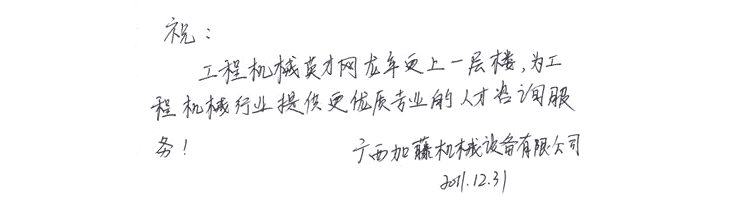 祝：
工程机械英才网龙年更上一层楼，为工
程机械行业提供更优质专业的人才咨询服
务！
广西加藤机械设备有限公司
2011.12.31